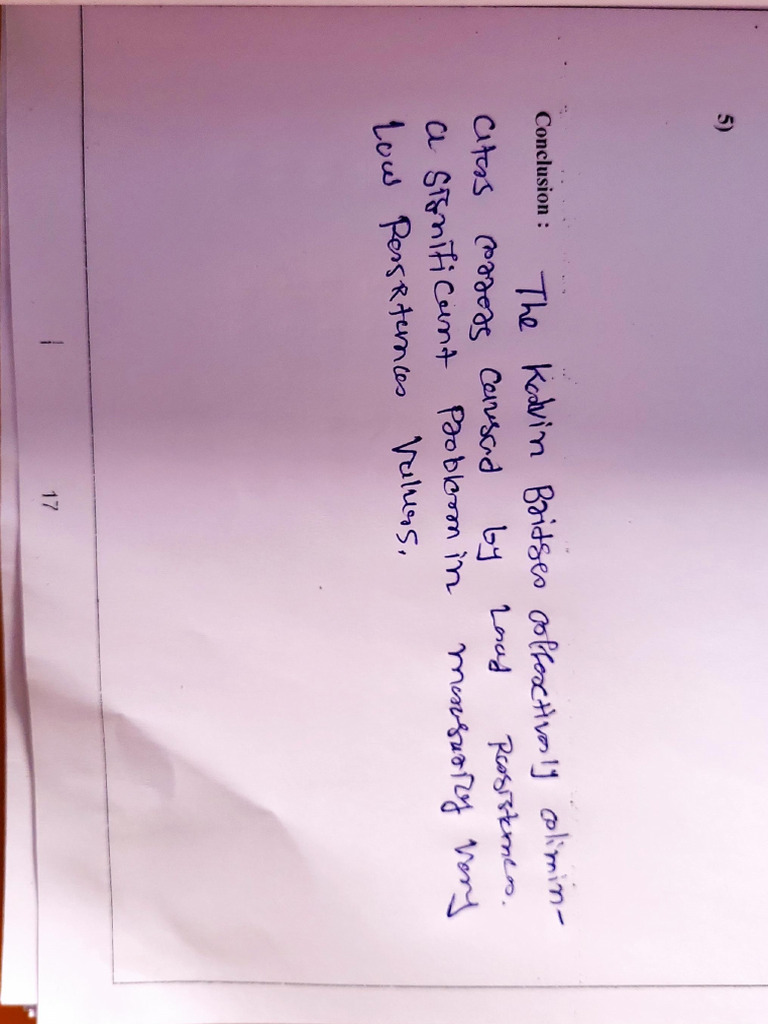 5)
Conclusion : The Kelvin Bridge effectively elimin-
ates errors caused by lead Resistance.
a significant problem in measuring very
low Resistance values.
17